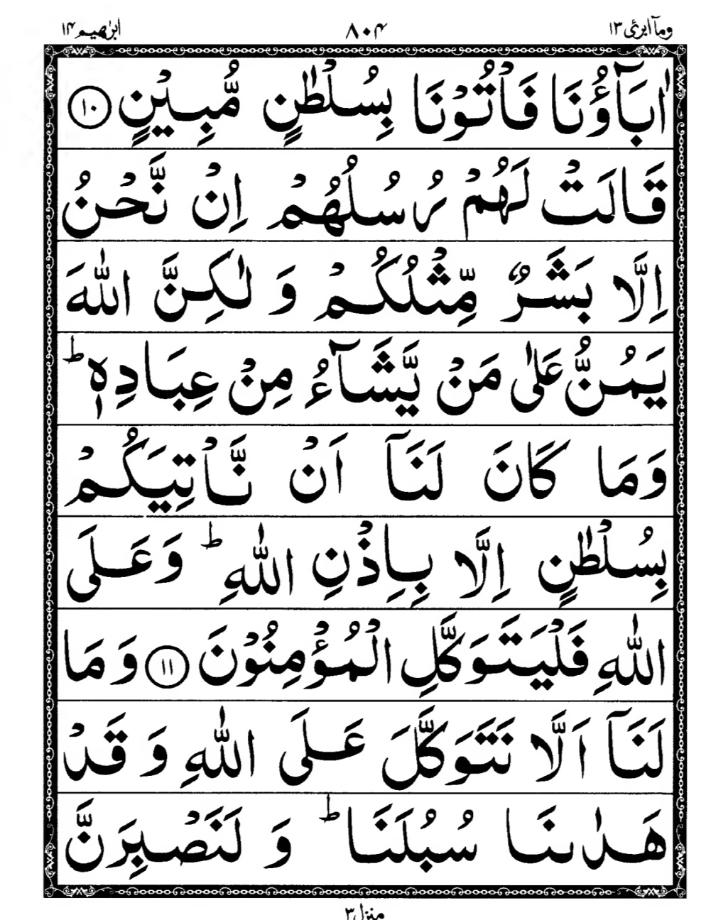 ابرٰهيم ١٤ ٨٠٤ ومآ ابرئ ١٣
اٰبَآؤُنَا فَاْتُوْنَا بِسُلْطٰنٍ مُّبِيْنٍ ١٠
قَالَتْ لَهُمْ رُسُلُهُمْ اِنْ نَّحْنُ
اِلَّا بَشَرٌ مِّثْلُكُمْ وَ لٰكِنَّ اللّٰهَ
يَمُنُّ عَلٰى مَنْ يَّشَآءُ مِنْ عِبَادِهٖ ؕ
وَمَا كَانَ لَنَآ اَنْ نَّاْتِيَكُمْ
بِسُلْطٰنٍ اِلَّا بِاِذْنِ اللّٰهِ ؕ وَعَلَى
اللّٰهِ فَلْيَتَوَكَّلِ الْمُؤْمِنُوْنَ ١١ وَ مَا
لَنَآ اَلَّا نَتَوَكَّلَ عَلَى اللّٰهِ وَ قَدْ
هَدٰىنَا سُبُلَنَا ؕ وَ لَنَصْبِرَنَّ
منزل ٣